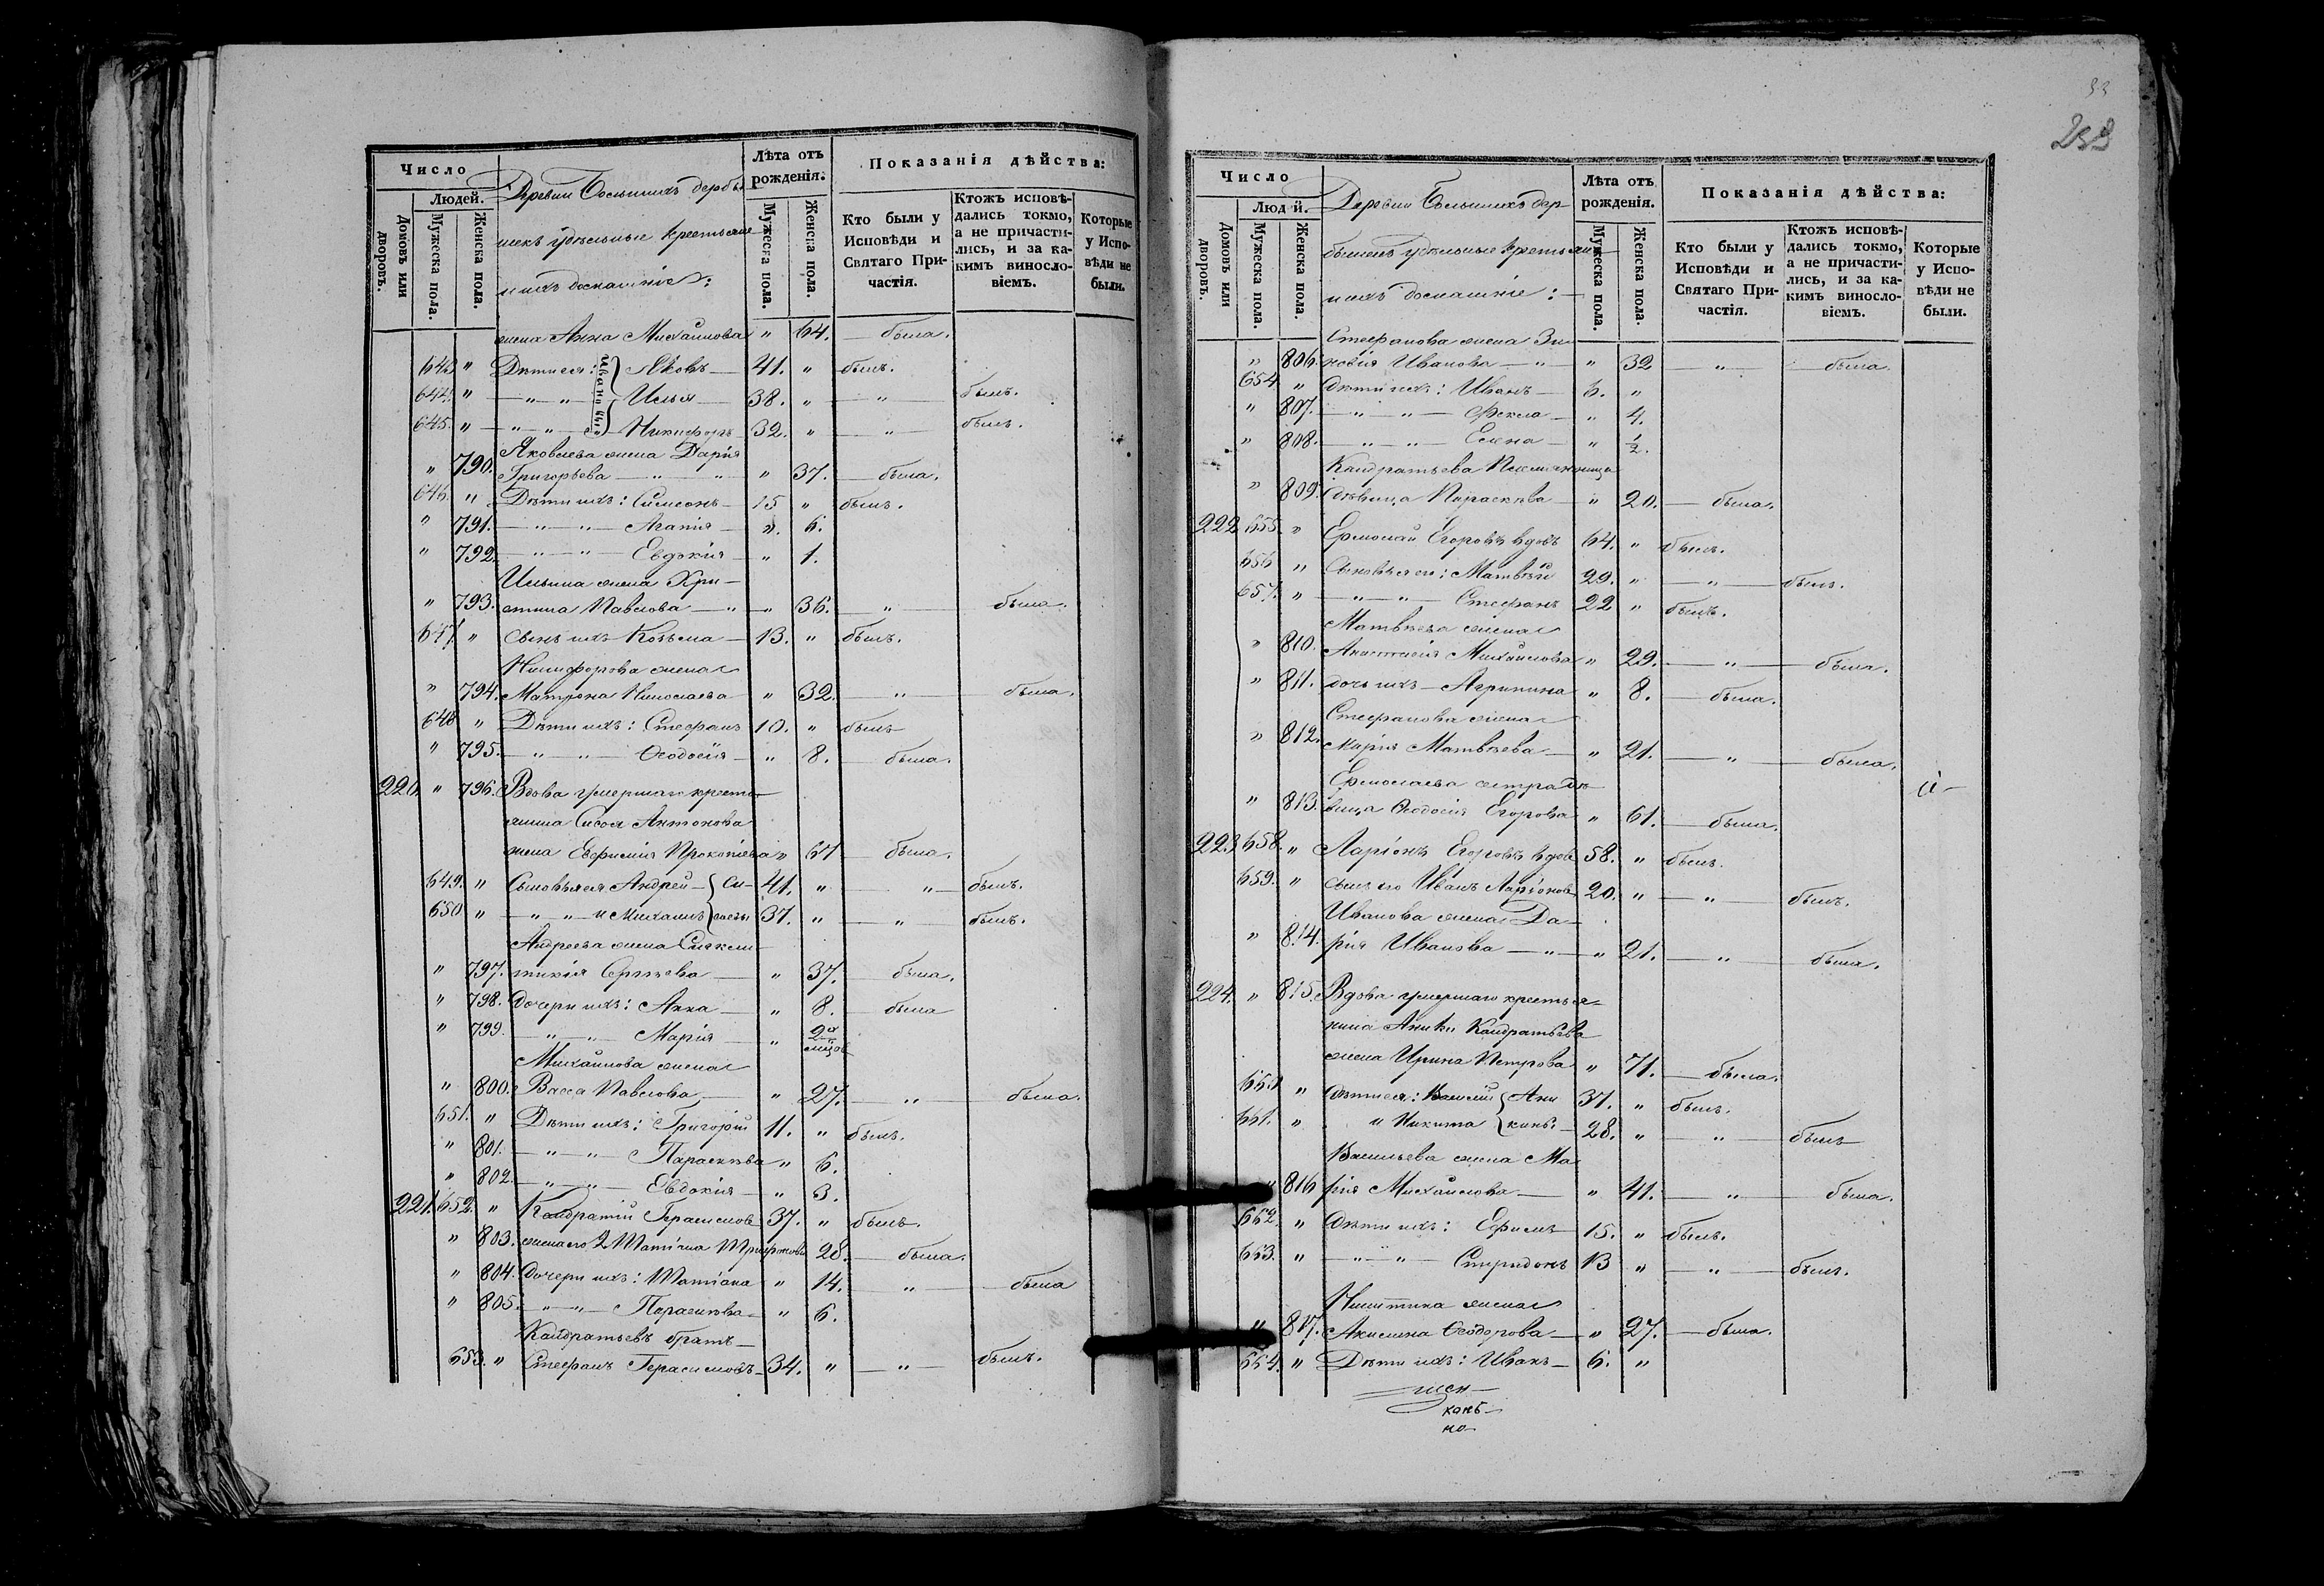 Число
Людей.
Домовъ или дворовъ.
Мужеска пола.
Женска пола.
Деревни Большихъ дербы
шекъ удѣльные крестьяне
и ихъ домашніе:
Лѣта отъ рожденія.
Мужеска пола.
Женска пола.
Показанія дѣйства:
Кто были у Исповѣди и Святаго Причастія.
Ктожъ исповѣдались токмо, а не причастились, и за какимъ винословіемъ.
Которые у Исповѣди не были.
жена Анна Михайлова " 64. — была.
643 " Дѣти ея: Ивановы Яковъ — 41. " былъ.
644. " — " — " — Илья — 38. " — " — былъ.
645. " — " — " — Никифоръ 32. " — " — былъ.
Яковлева жена Дарія
" 790. Григорьева — " — " " 37. — была.
646. " Дѣти ихъ: Симеонъ — 15 " былъ.
" 791. — " — " — Агапія — " 6.
" 792. — " — " — Евдокія — " 1.
Ильина жена Хри-
" 793. стина Павлова — " — " 36. — " — была.
647. " сынъ ихъ Козьма — 13. " былъ.
Никифорова жена
" 794. Матрона Николаева — " 32. — " — была.
648 " Дѣти ихъ: Стефанъ 10. " былъ
" 795. — " — " — Ѳеодосія — " 8. — была.
220. " 796. Вдова умершаго кресть-
янина Сисоя Антонова
жена Евфимія Прокопіева " 67 — была.
649. " Сыновья ея Андрей — Си- 41. " — " — былъ.
650 " — " — " и Михаилъ соевы 37. " — " — былъ.
Андреева жена Синкли-
" 797. тикія Сергѣева — " 37. — была.
" 798. Дочери ихъ: Анна — " 8. — была
" 799. — " — " — Марія — " 2х мѣсяц
Михайлова жена
" 800. Васса Павлова, — " 27. — " — была.
651. " Дѣти ихъ: Григорій 11. " былъ.
" 801. — " — " — Параскѣва " 6.
" 802. — " — " — Евдокія — " 3.
221. 652. " Кандратій Герасимовъ 37. " былъ.
" 803. жена его 2 Татіана 28. — была.
" 804. Дочери ихъ: Татіана " 14. — " — была
" 805. — " — " — Параскѣва — " 6.
Кандратьевъ братъ —
653. " Стефанъ Герасимовъ — 34. " — " — былъ.
33
233
Число
Людей.
Домовъ или дворовъ.
Мужеска пола.
Женска пола.
Деревни Большихъ дер-
бышекъ удѣльные крестьяне
и ихъ домашніе: —
Лѣта отъ рожденія.
Мужеска пола.
Женска пола.
Показанія дѣйства:
Кто были у Исповѣди и Святаго Причастія.
Ктожъ исповѣдались токмо, а не причастились, и за какимъ винословіемъ.
Которые у Исповѣди не были.
Стефанова жена Зи-
" 806. новія Иванова — " — " 32 — " — была.
654 " Дѣти ихъ: Иванъ — 6. "
" 807. — " — " — Фекла — " 4.
" 808. — " — " — Елена — " ½.
Кандратьева племянница
" 809. дѣвица Параскѣва — " 20. — была.
222 655. " Ермолай Егоровъ вдовъ 64. " былъ.
656 " Сыновья его: Матвѣй 29. " — " — былъ.
657. " — " — " — Стефанъ 22 " былъ.
Матвѣева жена
" 810. Анастасія Михайлова " 29. — " — была.
" 811. дочь ихъ — Агрипина " 8. — была.
Стефанова жена
" 812. Марія Матвѣева — " 21. — " — была.
Ермолаева сестра дѣ-
" 813. вица Ѳеодосія Егорова " 61. — была.
223 658. " Ларіонъ Егоровъ вдов 58. " былъ.
659. " сынъ его Иванъ Ларіоновъ 20. " — " — былъ.
Иванова жена Да-
" 814. рія Иванова — " — " 21. — " — была.
224. " 815. Вдова умершаго крестья-
нина Аники Кандратьева
жена Ирина Петрова " 71. — была.
660 " Дѣти ея: Василій Ани 37. " былъ.
661. " и Никита кины — 28. " — " — былъ
Васильева жена Ма-
" 816 рія Михайлова — " 41. — " — была.
662. " Дѣти ихъ: Ефимъ — 15. " былъ.
663. " — " — " — Спиридонъ 13 " — " — былъ.
Никитина жена
" 817. Акилина Ѳеодорова — " 27. — была.
664. " Дѣти ихъ: Иванъ — 6. "